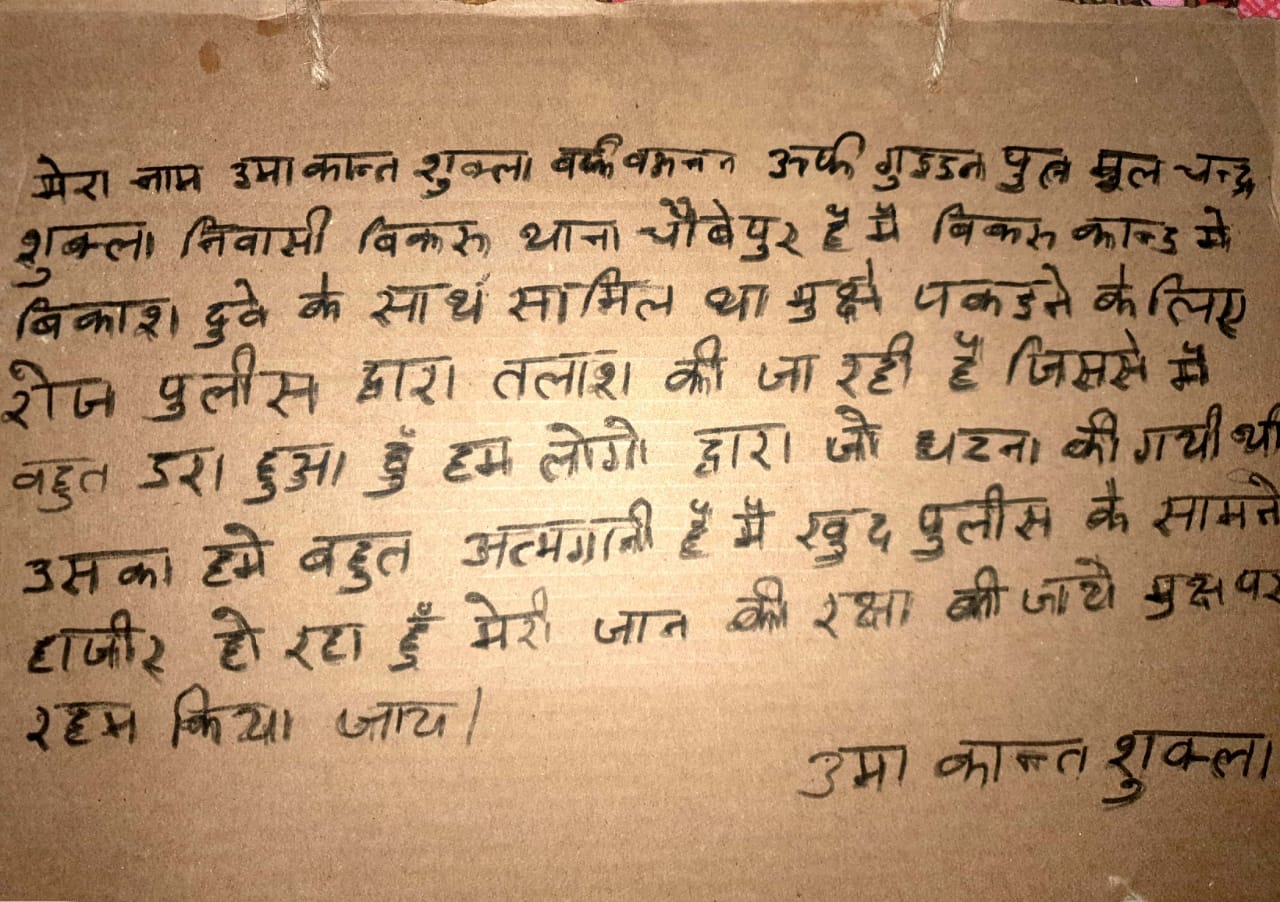 मेरा नाम उमाकान्त शुक्ला उर्फ गुड्डन पुत्र मूल चन्द्र
शुक्ला निवासी बिकरू थाना चौबेपुर है मै बिकरू कान्ड मे
बिकाश दुवे के साथ सामिल था मुक्षे पकडने के लिए
रोज पुलीस द्वारा तलाश की जा रही है जिससे मै
वहुत डरा हुआ हुँ हम लोगो द्वारा जो घटना की गयी थी
उसका हमे बहुत अत्मगानी है मै खुद पुलीस के सामने
हाजीर हो रहा हुँ मेरी जान की रक्षा की जाये मुक्ष पर
रहम किया जाय।
उमा कान्त शुक्ला